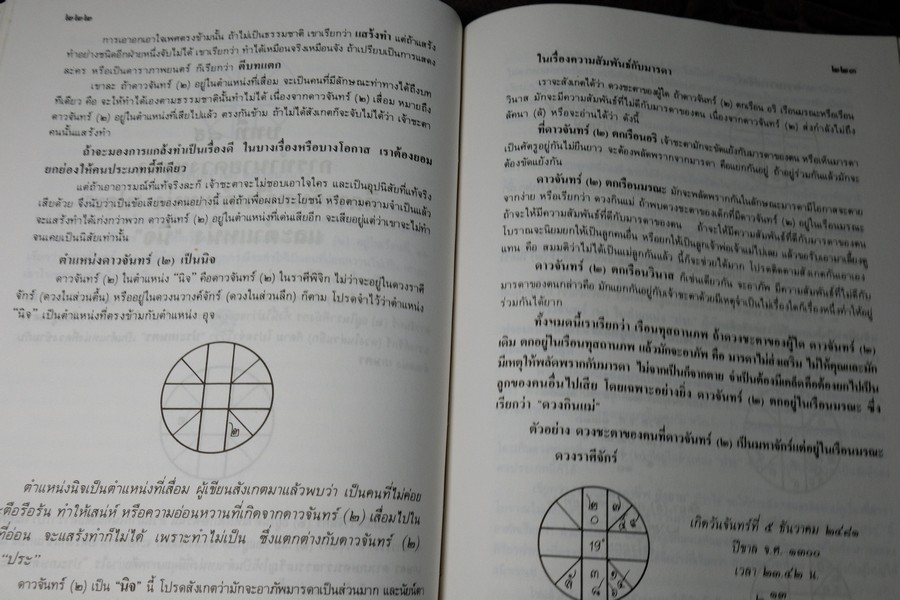 ๒๒๒
การเอาอกเอาใจเพศตรงข้ามนั้น ถ้าไม่เป็นธรรมชาติ เขาเรียกว่า แสร้งทำ แต่ถ้าแสร้ง
ทำอย่างชนิดอีกฝ่ายหนึ่งจับไม่ได้ เขาเรียกว่า ทำได้เหมือนจริงเหมือนจัง ถ้าเปรียบเป็นการแสดง
ละคร หรือเป็นดาราภาพยนตร์ ก็เรียกว่า ตีบทแตก
เขาละ ถ้าดาวจันทร์ (๒) อยู่ในตำแหน่งที่เสื่อม จะเป็นคนที่มีลักษณะท่าทางได้ถึงบท
ทีเดียว คือ จะให้ทำได้เองตามธรรมชาตินั้นทำไม่ได้ เนื่องจากดาวจันทร์ (๒) เสื่อม หมายถึง
ดาวจันทร์ (๒) อยู่ในตำแหน่งที่เสียไปแล้ว ตรงกันข้าม ถ้าไม่ได้สังเกตก็จะจับไม่ได้ว่า เจ้าชะตา
คนนั้นแสร้งทำ
ถ้าจะมองการแกล้งทำเป็นเรื่องดี ในบางเรื่องหรือบางโอกาส เราต้องยอม
ยกย่องให้คนประเภทนี้ทีเดียว
แต่ถ้าเอาอารมณ์ที่แท้จริงละก็ เจ้าชะตาจะไม่ชอบเอาใจใคร และเป็นอุปนิสัยที่แท้จริง
เสียด้วย จึงนับว่าเป็นข้อเสียของคนอย่างนี้ แต่ถ้าเพื่อผลประโยชน์ หรือตามความจำเป็นแล้ว
จะแสร้งทำได้เก่งกว่าพวก ดาวจันทร์ (๒) อยู่ในตำแหน่งที่เด่นเสียอีก จะเสียอยู่แต่ว่าเขาจะไม่ทำ
จนเคยเป็นนิสัยเท่านั้น
ตำแหน่งดาวจันทร์ (๒) เป็นนิจ
ดาวจันทร์ (๒) ในตำแหน่ง "นิจ" คือดาวจันทร์ (๒) ในราศีพิจิก ไม่ว่าจะอยู่ในดวงราศี
จักร์ (ดวงในส่วนตื้น) หรืออยู่ในดวงนวางค์จักร์ (ดวงในส่วนลึก) ก็ตาม โปรดจำไว้ว่าตำแหน่ง
"นิจ" เป็นตำแหน่งที่ตรงข้ามกับตำแหน่ง อุจ
๒
ตำแหน่งนิจเป็นตำแหน่งที่เสื่อม ผู้เขียนสังเกตมาแล้วพบว่า เป็นคนที่ไม่ค่อย
กระตือรือรัน ทำให้เสน่ห์ หรือความอ่อนหวานที่เกิดจากดาวจันทร์ (๒) เสื่อมไปใน
ที่อ่อน จะแสร้งทำก็ไม่ได้ เพราะทำไม่เป็น ซึ่งแตกต่างกับดาวจันทร์ (๒)
"ประ"
ดาวจันทร์ (๒) เป็น "นิจ" นี้ โปรดสังเกตว่ามักจะอาภัพมารดาเป็นส่วนมาก และนัยน์ตา
ในเรื่องความสัมพันธ์กับมารดา
๒๒๓
เราจะสังเกตได้ว่า ดวงชะตาของผู้ใด ถ้าดาวจันทร์ (๒) ตกเรือน อริ เรือนมรณะหรือเรือน
วินาส มักจะมีความสัมพันธ์ที่ไม่ดีกับมารดาของตน เนื่องจากดาวจันทร์ (๒) ส่งกำลังไม่ถึง
ลัคนา (ลั) หรือจะอ่านได้ว่า ดังนี้
ที่ดาวจันทร์ (๒) ตกเรือนอริ เจ้าชะตามักจะขัดแย้งกับมารดาของตน หรือเห็นมารดา
เป็นศัตรูอยู่กันไม่ยืนยาว จะต้องพลัดพรากจากมารดา คือแยกกันอยู่ ถ้าอยู่ร่วมกันแล้วมักจะ
ต้องขัดแย้งกัน
ดาวจันทร์ (๒) ตกเรือนมรณะ มักจะพลัดพรากกันในลักษณะมารดามีโอกาสจะตาย
จากง่าย หรือเรียกว่า ดวงกินแม่ ถ้าพบดวงชะตาของเด็กที่มีดาวจันทร์ (๒) อยู่ในเรือนมรณะ
ถ้าจะให้มีความสัมพันธ์ที่ดีกับมารดาของตน ถ้าจะให้มีความสัมพันธ์ที่ดีกับมารดาของตน
โบราณจะนิยมยกให้เป็นลูกคนอื่น หรือยกให้เป็นลูกเจ้าพ่อเจ้าแม่ไปเลย แล้วขอรับเอามาเลี้ยงดู
แทน คือ สมมติว่าไม่ได้เป็นแม่ลูกกันแล้ว นี้ก็จะช่วยได้มาก โปรดติดตามสังเกตกันเอาเอง
ดาวจันทร์ (๒) ตกเรือนวินาส ก็เช่นเดียวกัน จะอาภัพ มีความสัมพันธ์ที่ไม่ดีกับ
มารดาของตนกล่าวคือ มักแยกกันอยู่กับเจ้าชะตาด้วยมีเหตุจำเป็นไม่เรื่องใดก็เรื่องหนึ่งทำให้อยู่
ร่วมกันได้ยาก
ทั้งหมดนี้เราเรียกว่า เรือนทุสถานภพ ถ้าดวงชะตาของผู้ใด ดาวจันทร์ (๒)
เดิม ตกอยู่ในเรือนทุสถานภพ แล้วมักจะอาภัพ คือ มารดาไม่ส่งเสริม ไม่ได้คุณและมัก
มีเหตุให้พลัดพรากกับมารดา ไม่จากเป็นก็จากตาย จำเป็นต้องมีเคล็ดคือต้องยกไปเป็น
ลูกของคนอื่นไปเสีย โดยเฉพาะอย่างยิ่ง ดาวจันทร์ (๒) ตกอยู่ในเรือนมรณะ ซึ่ง
เรียกว่า "ดวงกินแม่"
ตัวอย่าง ดวงชะตาของคนที่ดาวจันทร์ (๒) เป็นมหาจักร์แต่อยู่ในเรือนมรณะ
ดวงราศีจักร์
๒ ๗
๐ ๕
19°
ลั ๓ ๑
๘ ๖
เกิดวันจันทร์ที่ ๕ ธันวาคม ๒๔๘๑
ปีขาล จ.ศ. ๑๓๐๐
เวลา ๒๓.๔๒ น.